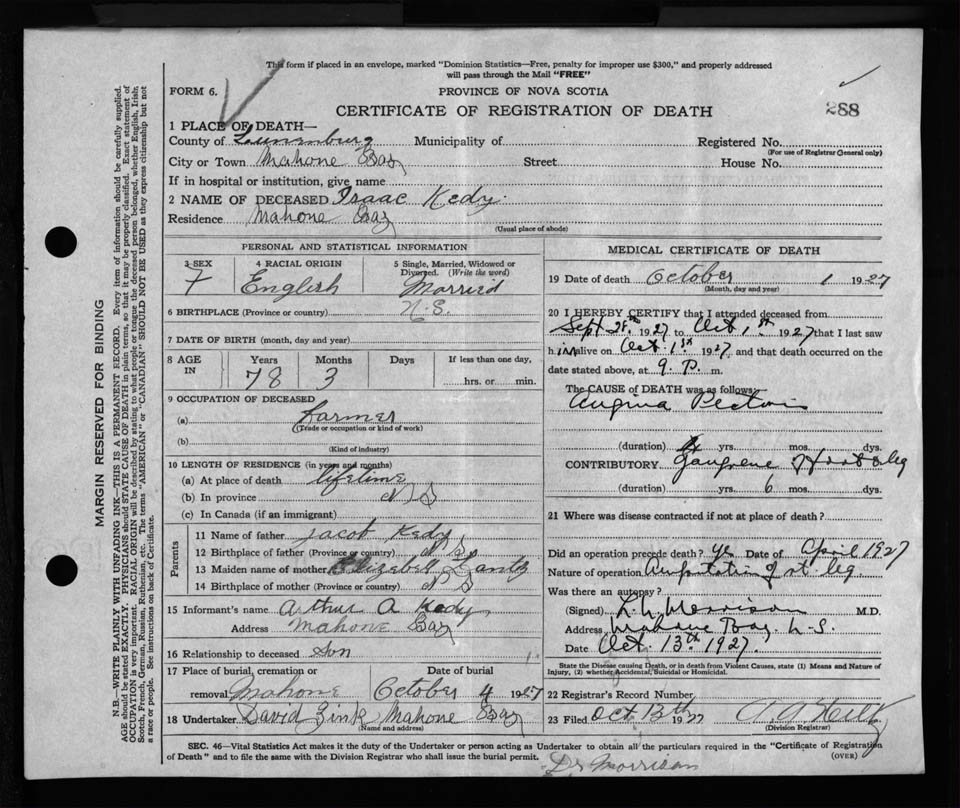 This form if placed in an envelope, marked "Dominion Statistics—Free, penalty for improper use $300," and properly addressed
will pass through the Mail "FREE"
FORM 6.
PROVINCE OF NOVA SCOTIA
CERTIFICATE OF REGISTRATION OF DEATH
288
1 PLACE OF DEATH—
County of Lunenburg Municipality of Registered No.
(For use of Registrar General only)
City or Town Mahone Bay Street House No.
If in hospital or institution, give name
2 NAME OF DECEASED Isaac Kedy.
Residence Mahone Bay
(Usual place of abode)
PERSONAL AND STATISTICAL INFORMATION
3 SEX 4 RACIAL ORIGIN 5 Single, Married, Widowed or
Divorced. (Write the word)
English Married
6 BIRTHPLACE (Province or country) N.S.
7 DATE OF BIRTH (month, day, and year)
8 AGE IN Years Months Days If less than one day,
78 3 hrs. or min.
9 OCCUPATION OF DECEASED
(a) Farmer
(Trade or occupation or kind of work)
(b)
(Kind of industry)
10 LENGTH OF RESIDENCE (in years and months)
(a) At place of death lifetime
(b) In province N S
(c) In Canada (if an immigrant)
Parents
11 Name of father Jacob Kedy
12 Birthplace of father (Province or country) N S.
13 Maiden name of mother
14 Birthplace of mother (Province or country) N S
15 Informant's name Arthur A Kedy
Address Mahone Bay
16 Relationship to deceased Son
17 Place of burial, cremation or Date of burial
removal Mahone October 4 1927
18 Undertaker David Zink Mahone Bay
(Name and address)
MEDICAL CERTIFICATE OF DEATH
19 Date of death October 1 1927
(Month, day and year)
20 I HEREBY CERTIFY that I attended deceased from
Sept 28th 1927 to Oct 1st 1927 that I last saw
him alive on Oct 1st 1927, and that death occurred on
date stated above, at 9. P. m.
The CAUSE OF DEATH was as follows:
Angina Pectoris
(duration) yrs. mos. dys.
CONTRIBUTORY Gangrene of foot & leg
(duration) yrs. 6 mos. dys.
21 Where was disease contracted if not at place of death?
Did an operation precede death? yes Date of April 1927
Nature of operation Amputation of rt leg.
Was there an autopsy?
(Signed) Morrison M.D.
Address Mahone Bay. N.S.
Date Oct. 13th 1927.
State the Disease causing Death, or in death from Violent Causes, state (1) Means and Nature of
Injury, (2) whether Accidental, Suicidal or Homicidal.
22 Registrar's Record Number
23 Filed Oct 13th 1927
(Division Registrar)
SEC. 46—Vital Statistics Act makes it the duty of the Undertaker or person acting as Undertaker to obtain all the particulars required in the "Certificate of Registration
of Death" and to file the same with the Division Registrar who shall issue the burial permit.
(OVER)
Dr Morrison
MARGIN RESERVED FOR BINDING
N.B.—WRITE PLAINLY WITH UNFADING INK—THIS IS A PERMANENT RECORD. Every item of information should be carefully supplied.
AGE should be stated EXACTLY. PHYSICIANS should STATE CAUSE OF DEATH in plain terms, so that it may be properly classified. Exact statement of
OCCUPATION is very important. RACIAL ORIGIN will be described by stating to what people or tongue the deceased person belonged, whether English, Irish,
Scotch, French, German, Russian, Ruthenian, etc. The terms "AMERICAN" or "CANADIAN" SHOULD NOT BE USED as they express citizenship but not
a race or people. See instructions on back of Certificate.